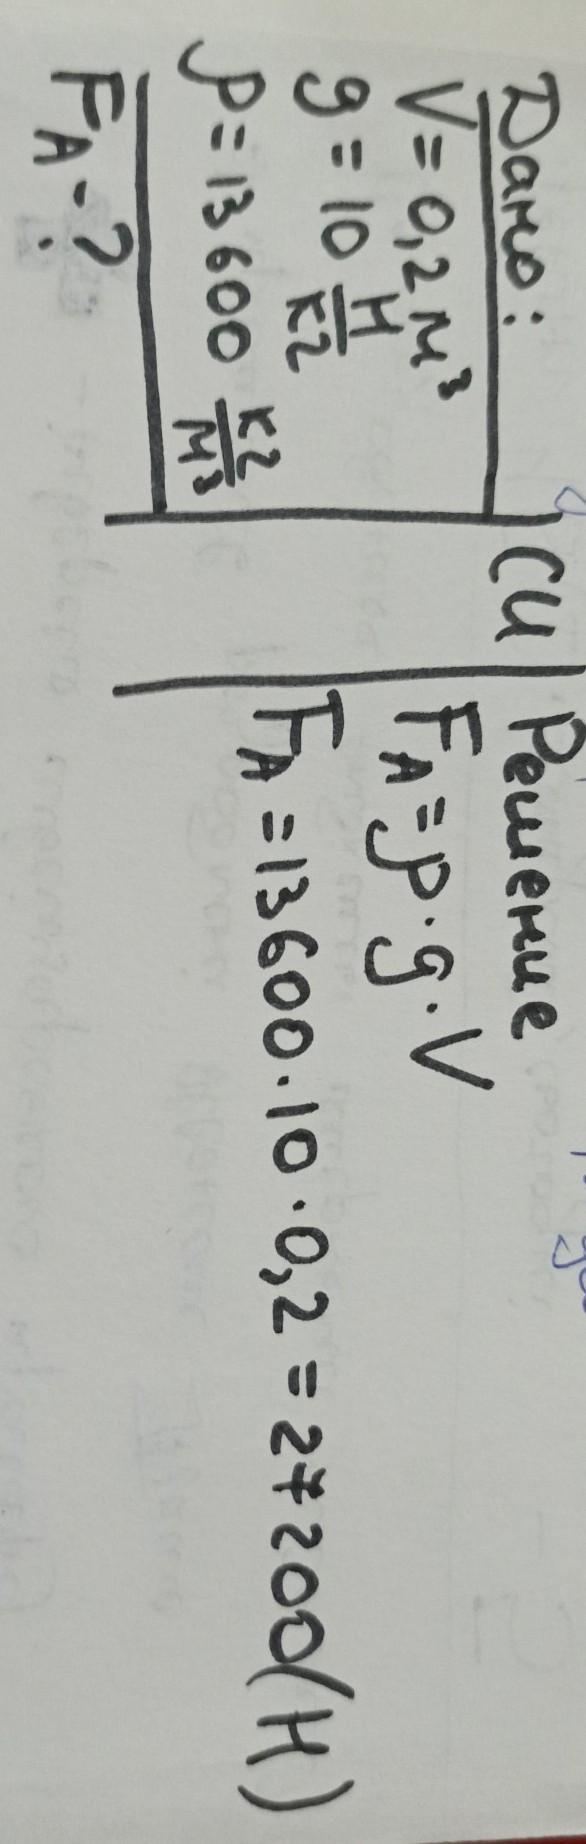 Дано:
V = 0,2 м³
g = 10 Н/кг
ρ = 13 600 кг/м³
FА - ?
СИ
Решение
FА = ρ · g · V
FА = 13600 · 10 · 0,2 = 27200 (Н)